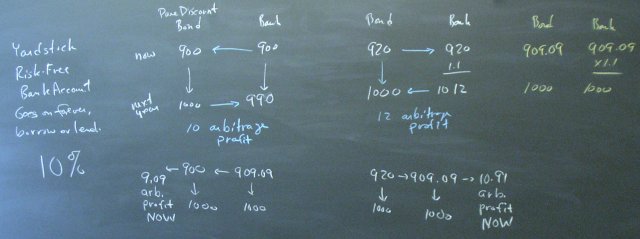 Yardstick
Risk-Free
Bank Account
Goes on forever,
borrow or lend.
10%
Pure Discount
Bond Bank
now 900 ← 900
next year 1000 → 990
10 arbitrage
profit
9.09 ← 900 ← 909.09
arb.
profit 1000 1000
NOW
Bond Bank
920 → 920
1.1
1000 ← 1012
12 arbitrage
profit
920 → 909.09 → 10.91
arb.
1000 1000 profit
NOW
Bond Bank
909.09 909.09
x1.1
1000 1000